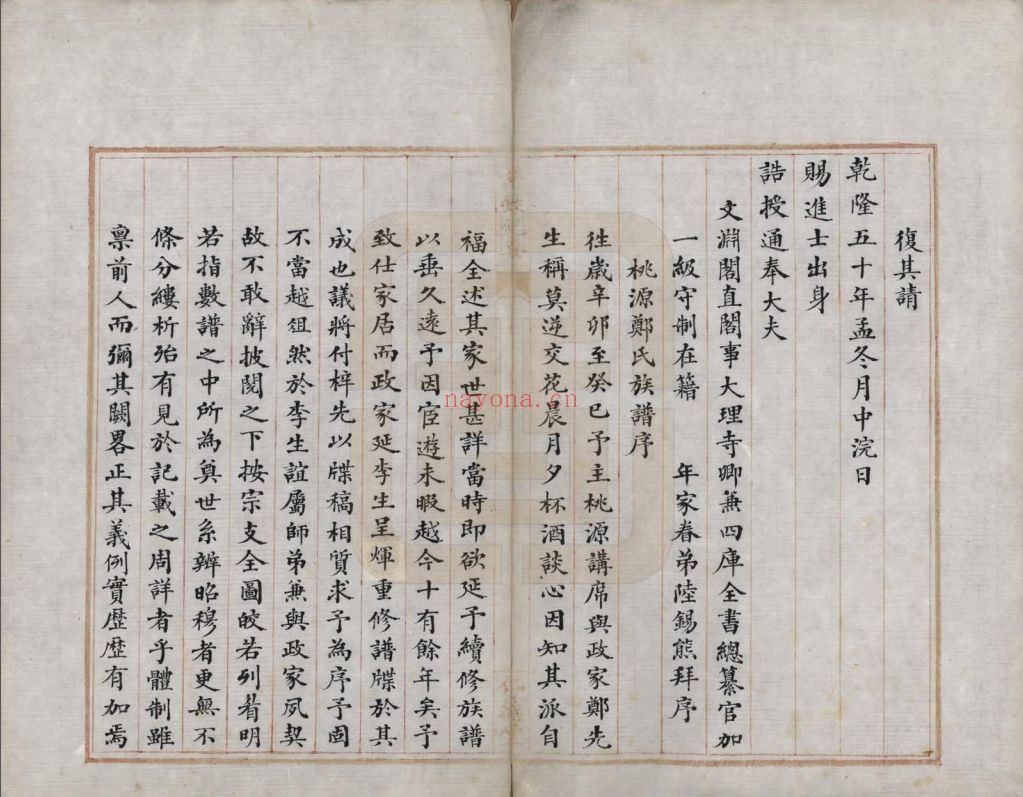 復其請
乾隆五十年孟冬月中浣日
賜進士出身
誥授通奉大夫
文淵閣直閣事大理寺卿兼四庫全書總纂官加
一級守制在籍 年家眷弟陸錫熊拜序
桃源鄭氏族譜序
徃歲辛卯至癸巳予主桃源講席與政家鄭先
生稱莫逆交花晨月夕杯酒談心因知其派自
福全述其家世甚詳當時即欲延予續修族譜
以垂久遠予因宦遊未暇越今十有餘年矣予
致仕家居而政家延李生呈煇重修譜牒於其
成也議將付梓先以牒稿相質求予為序予固
不當越俎然於李生誼屬師弟兼與政家夙契
故不敢辭披閱之下按宗支全圖皎若列眉明
若指數譜之中所為奠世系辨昭穆者更無不
條分縷析殆有見於記載之周詳者乎體制雖
禀前人而彌其闕畧正其義例實歷歷有加焉
nayona.cn